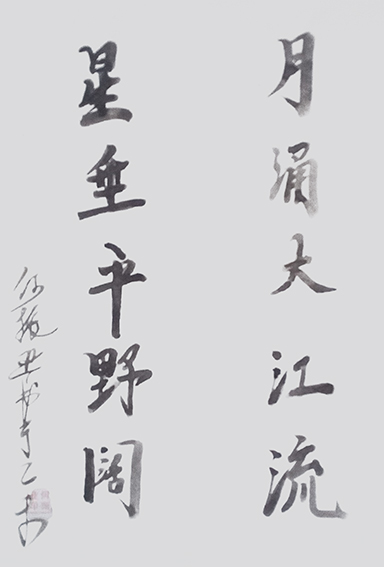 月涌大江流
星垂平野阔